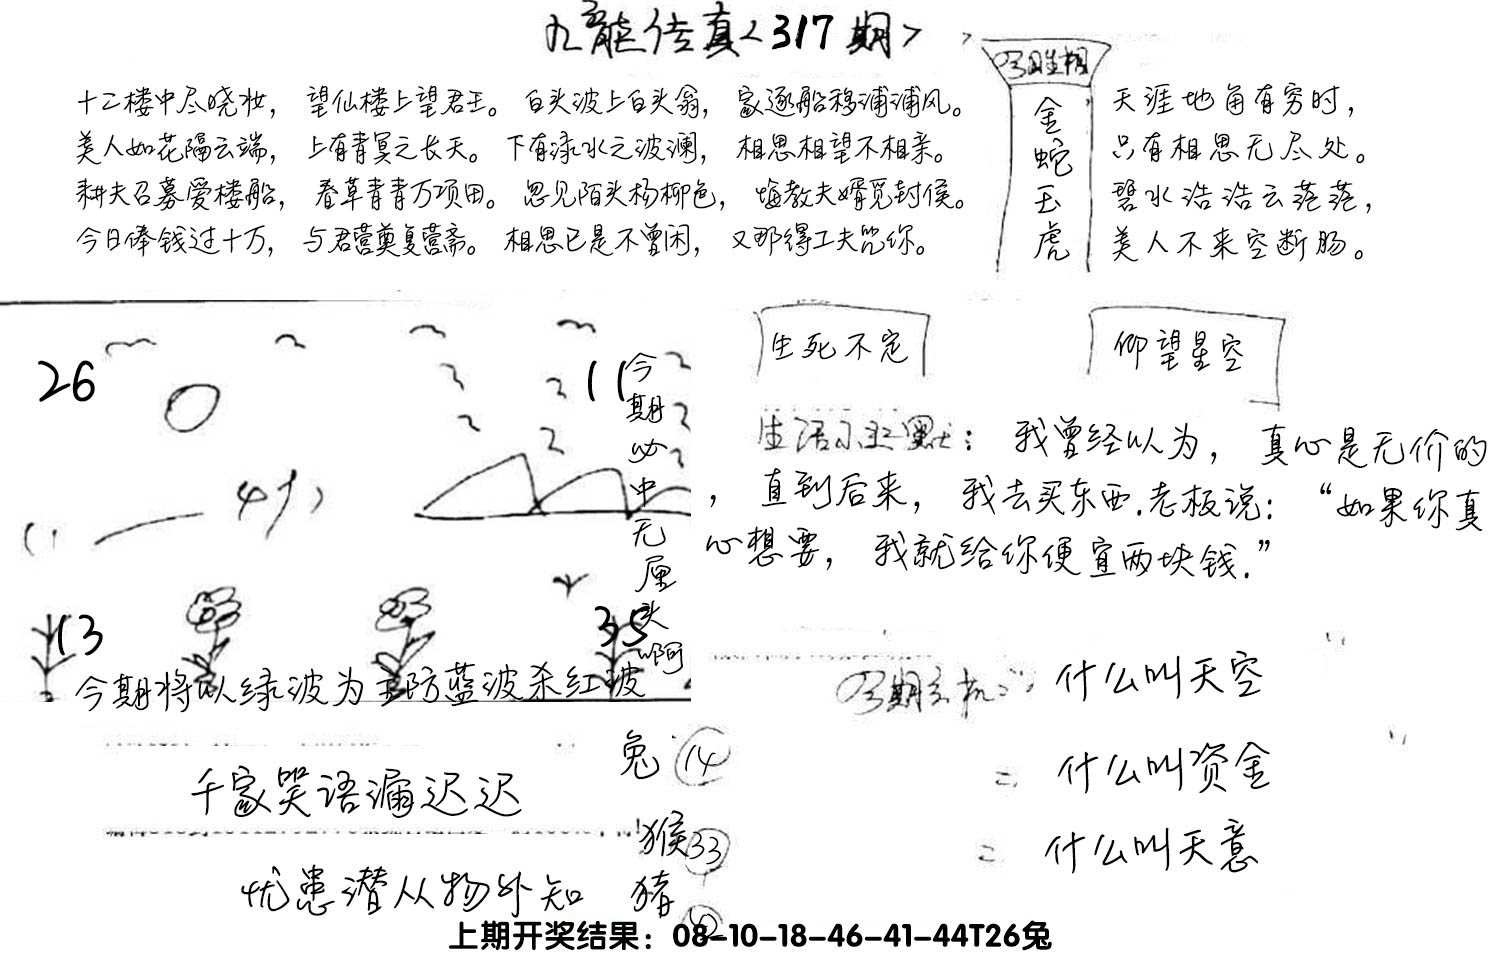 九龙传真<317期>
十二楼中尽晓妆，望仙楼上望君王。白头波上白头翁，家逐船移浦浦风。
美人如花隔云端，上有青冥之长天。下有渌水之波澜，相思相望不相亲。
耕夫召募爱楼船，春草青青万项田。忽见陌头杨柳色，悔教夫婿觅封侯。
今日俸钱过十万，与君营奠复营斋。相思已是不曾闲，又那得工夫咒你。
今期生相
金蛇玉虎
天涯地角有穷时，
只有相思无尽处。
碧水浩浩云茫茫，
美人不来空断肠。
26
11
13
35
今期必中无厘头啊
今期将以绿波为主防蓝波杀红波
生死不定
仰望星空
生活小幽默：我曾经以为，真心是无价的
，直到后来，我去买东西.老板说：“如果你真
心想要，我就给你便宜两块钱.”
今期玄机：什么叫天空
二 什么叫资金
二 什么叫天意
千家笑语漏迟迟
忧患潜从物外知
兔 14
猴 33
猪
上期开奖结果：08-10-18-46-41-44T26兔